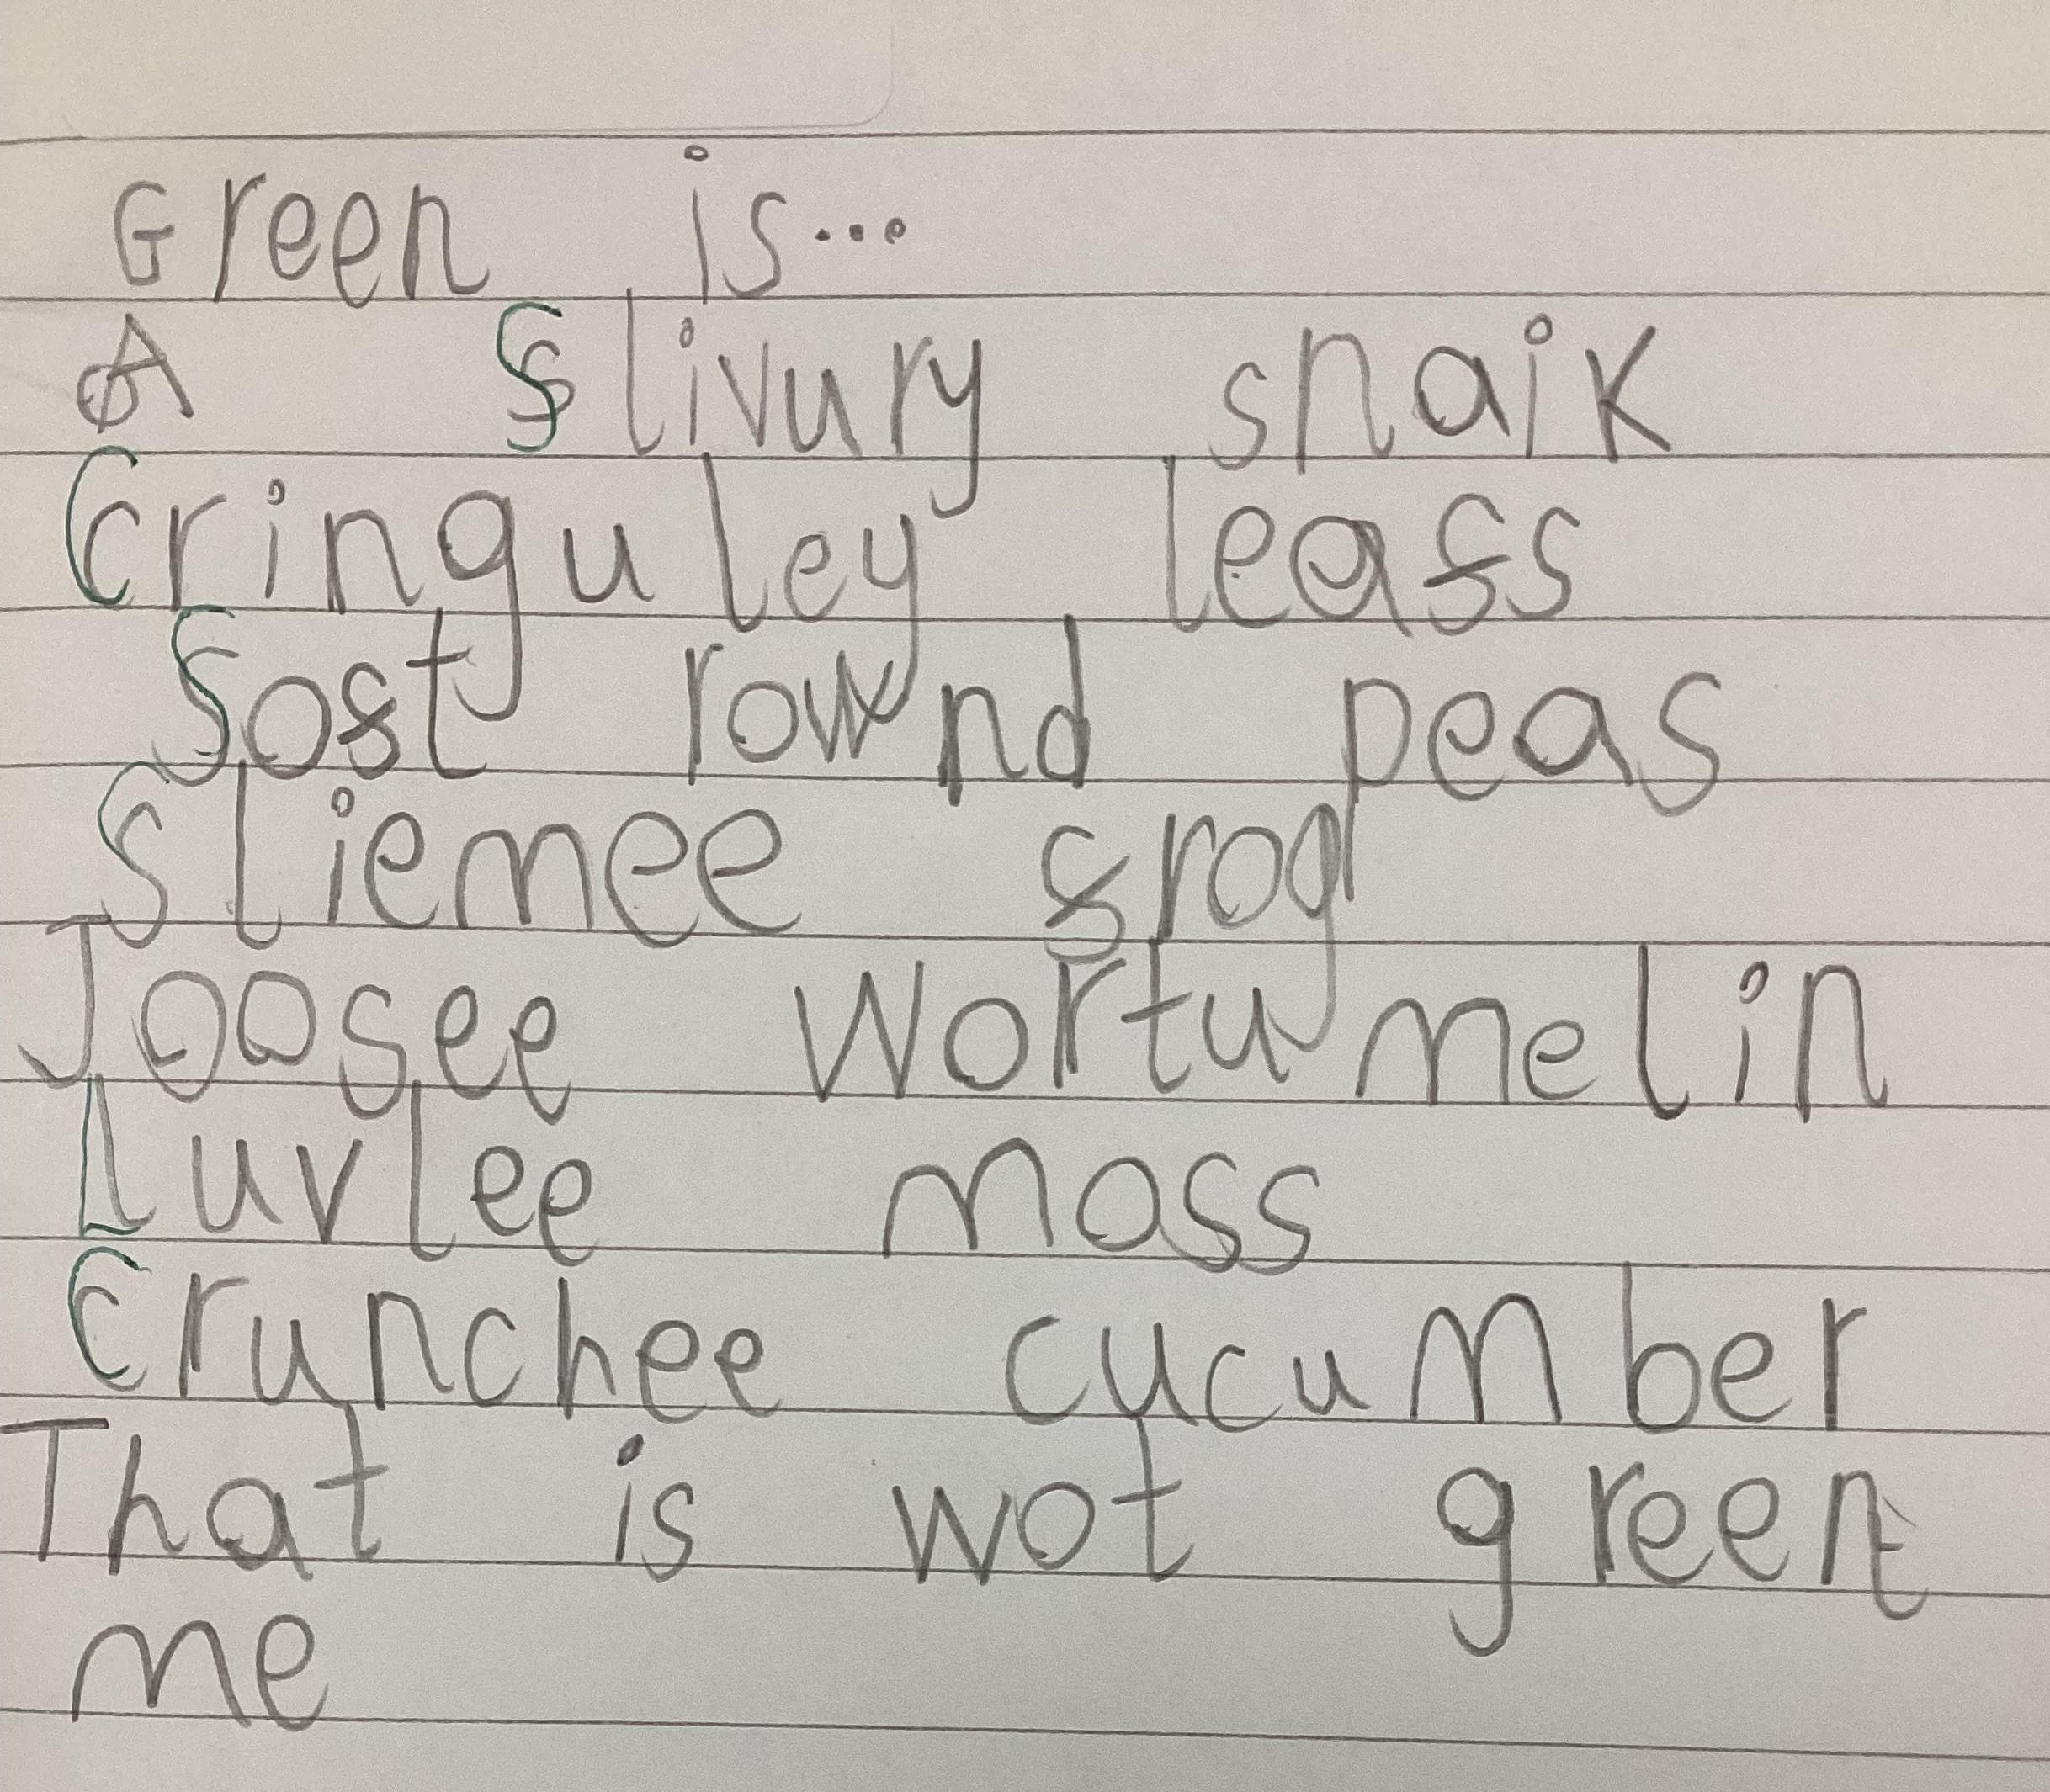 Green is...
A Slivury snaik
Cringuley leafs
Soft rownd peas
Sliemee frog
Joosee wortumelin
Luvlee moss
Crunchee cucumber
That is wot green
me